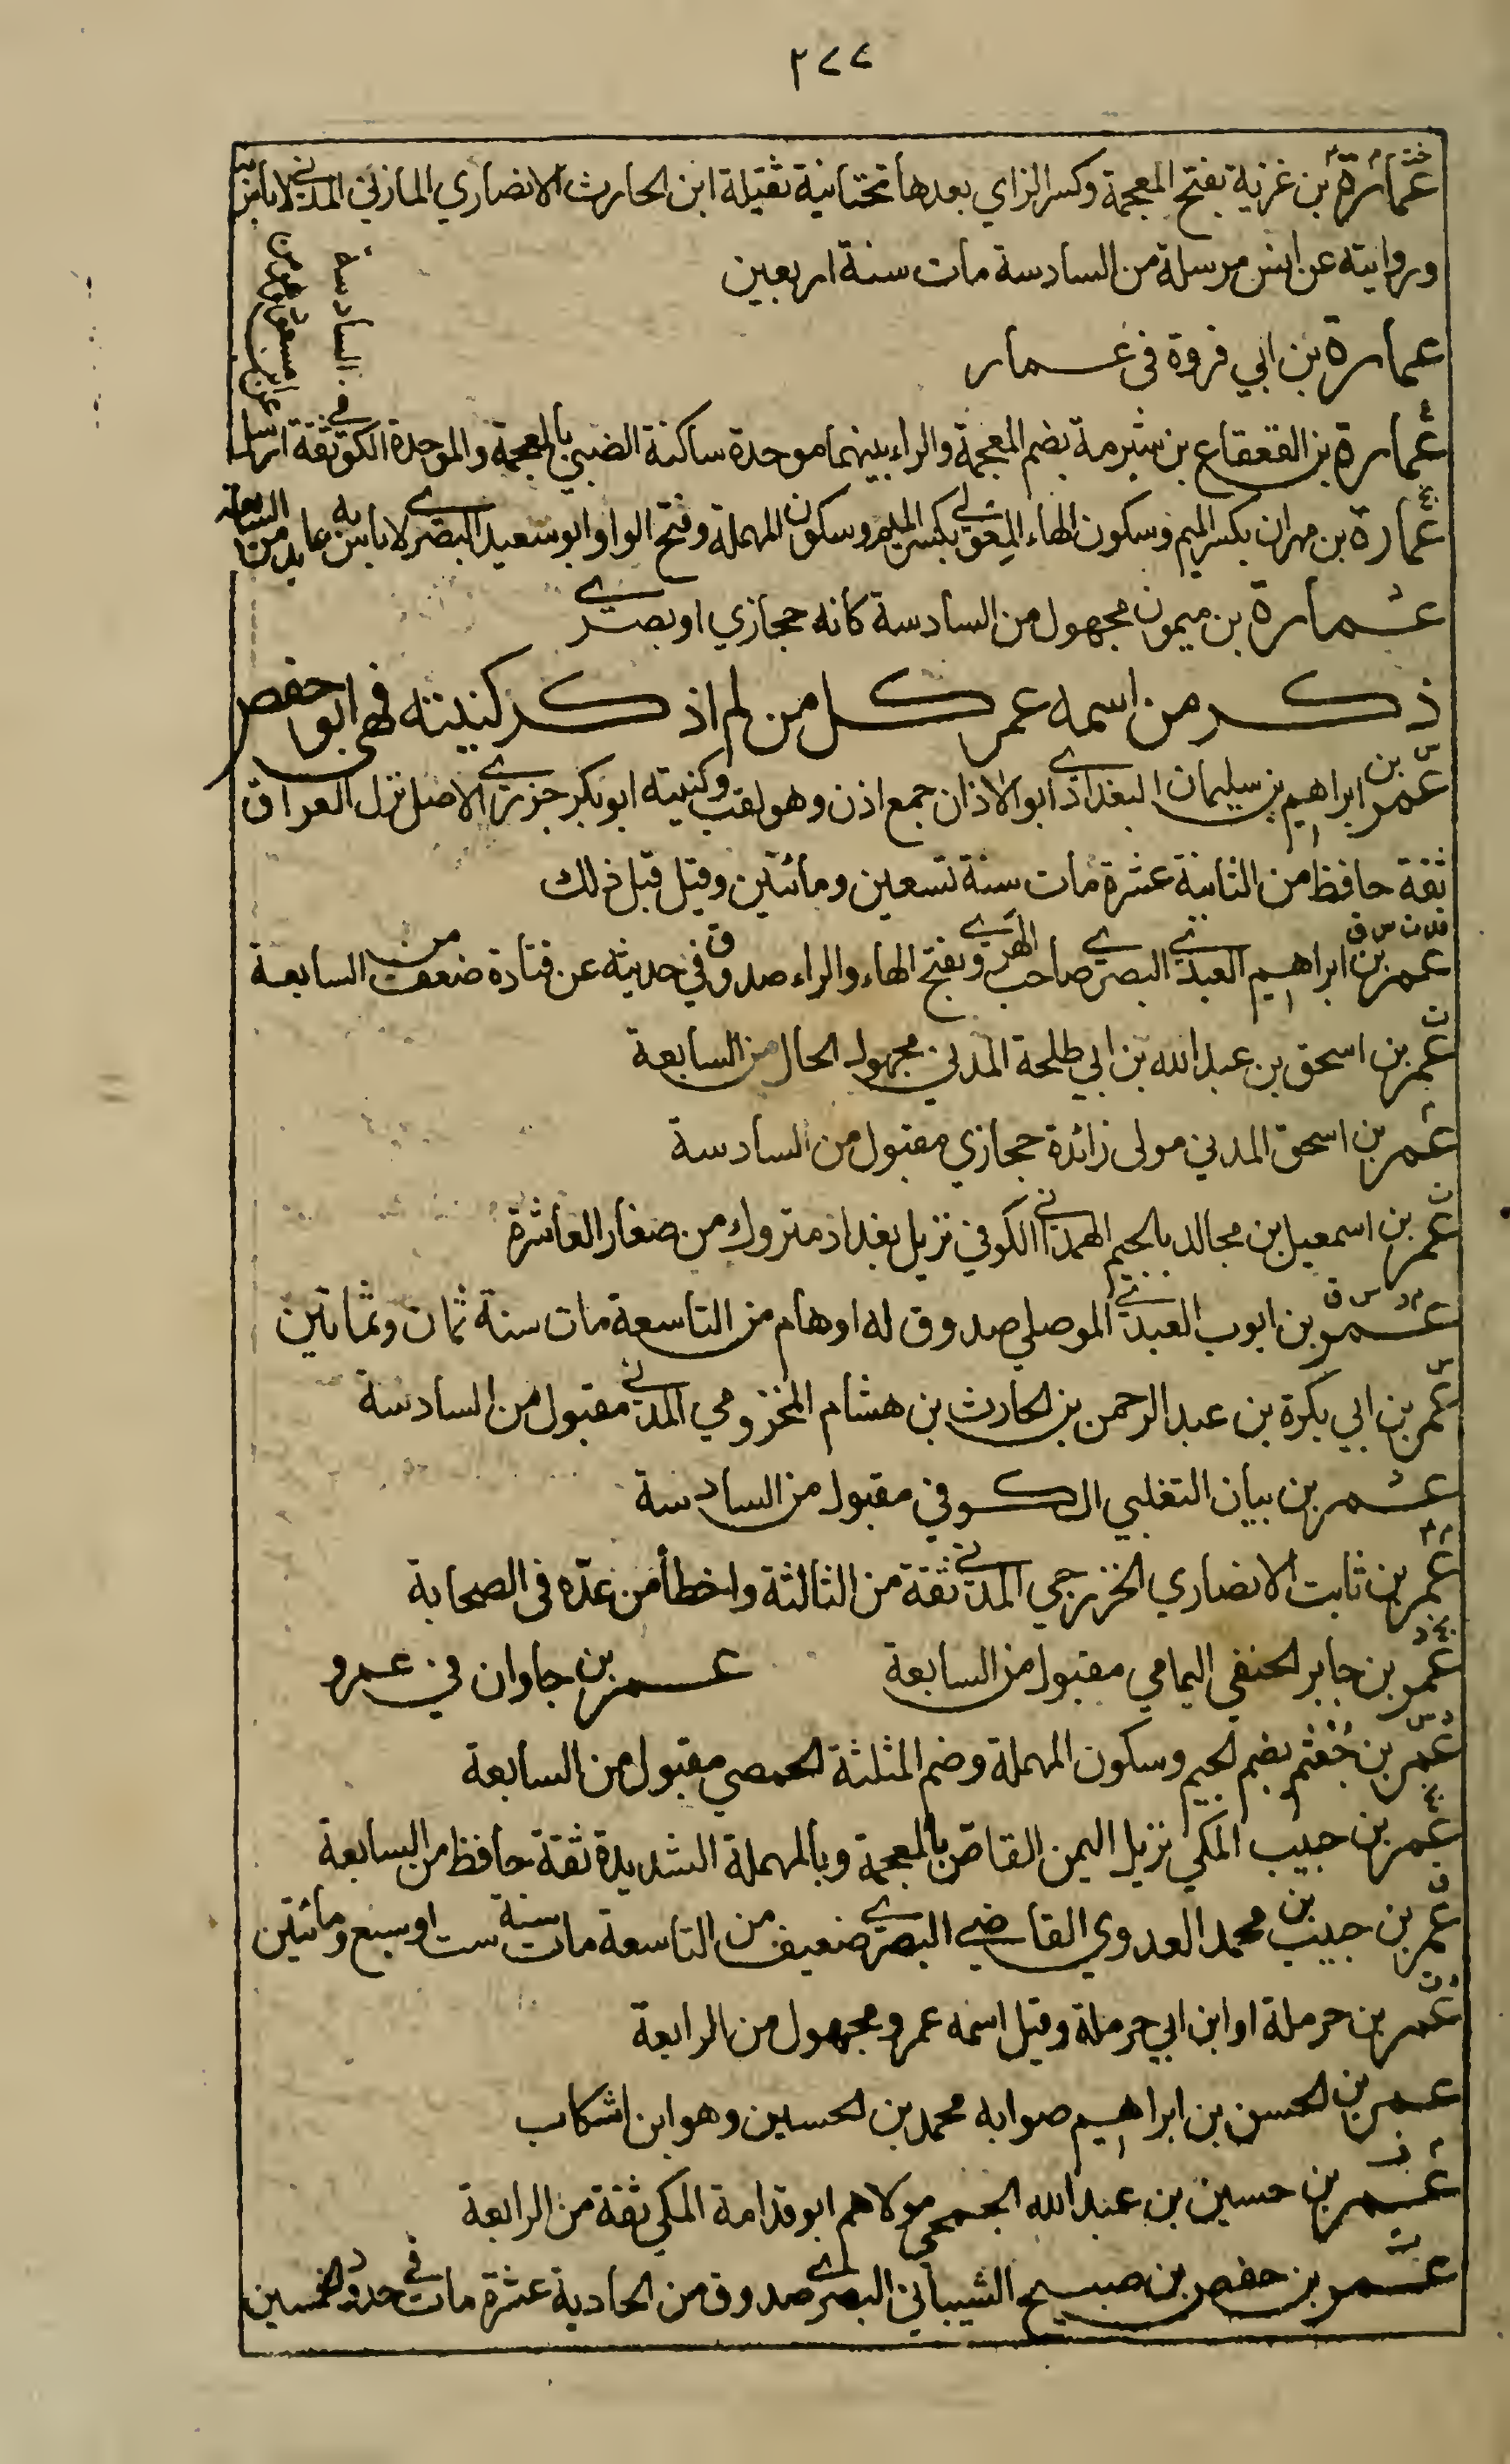 ٢٧٧
عمارة بن غزية بفتح المعجمة وكسر الزاي بعدها تحتانية ثقيلة ابن الحارث الانصاري المازني المدني لا باس به
وروايته عن انس مرسلة من السادسة مات سنة اربعين
عمارة بن ابي فروة في عمار
عمارة بن القعقاع بن شبرمة بضم المعجمة والراء بينهما موحدة ساكنة الضبي بالمعجمة والموحدة الكوفي ثقة ارسل
عن ابن مسعود وهو من
السادسة
عمارة بن مهران بكسر الميم وسكون الهاء المعولي بكسر الميم وسكون المهملة وفتح الواو ابو سعيد البصري لا باس به عابد من السابعة
عمارة بن ميمون مجهول من السادسة كانه حجازي او بصري
ذكر من اسمه عمر كل من لم اذكر كنيته فهي ابو حفص
س
عمر بن ابراهيم بن سليمان البغدادي ابو الاذان جمع اذن وهو لقب وكنيته ابو بكر جزري الاصل نزل العراق
ثقة حافظ من الثانية عشرة مات سنة تسعين ومائتين وقيل قبل ذلك
قد ت س ق
عمر بن ابراهيم العبدي البصري صاحب الهروي بفتح الهاء والراء صدوق في حديثه عن قتادة ضعف من السابعة
ت
عمر بن اسحق بن عبد الله بن ابي طلحة المدني مجهول الحال من السابعة
م
عمر بن اسحق المدني مولى زائدة حجازي مقبول من السادسة
ت
عمر بن اسمعيل ابن مجالد بالجيم الهمداني الكوفي نزيل بغداد متروك من صغار العاشرة
م د س ق
عمر بن ايوب العبدي الموصلي صدوق له اوهام من التاسعة مات سنة ثمان وثمانين
س
عمر بن ابي بكرة بن عبد الرحمن بن الحارث بن هشام المخزومي المدني مقبول من السادسة
عمر بن بيان التغلبي الكوفي مقبول من السادسة
م ٤
عمر بن ثابت الانصاري الخزرجي المدني ثقة من الثالثة واخطأ من عده في الصحابة
بخ د
عمر بن جابر الحنفي اليمامي مقبول من السابعة عمر بن جاوان في عمرو
د س
عمر بن جُعْثُم بضم الجيم وسكون المهملة وضم المثلثة الحمصي مقبول من السابعة
بخ
عمر بن حبيب المكي نزيل اليمن القاص بالمعجمة وبالمهملة الشديدة ثقة حافظ من السابعة
ق
عمر بن حبيب بن محمد العدوي القاضي البصري ضعيف من التاسعة مات سنة ست او سبع ومائتين
د ت
عمر بن حرملة او ابن ابي حرملة وقيل اسمه عمرو مجهول من الرابعة
عمر بن الحسن بن ابراهيم صوابه محمد بن الحسين وهو ابن اشكاب
عمر بن حسين بن عبد الله الجمحي مولاهم ابو قدامة المكي ثقة من الرابعة
ت
عمر بن حفص بن صبيح الشيباني البصري صدوق من الحادية عشرة مات في حدود الخمسين